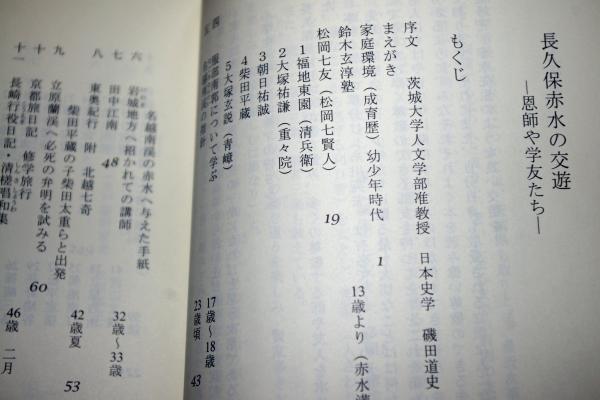 長久保赤水の交遊
―恩師や学友たち―
もくじ
序文 茨城大学人文学部准教授 日本史学 磯田道史
まえがき
家庭環境(成育歴)幼少年時代 1
鈴木玄淳塾 13歳より(赤水満
松岡七友(松岡七賢人) 19
1福地東園(清兵衛)
2大塚祐謙(重々院)
3朝日祐誠
4柴田平蔵
5大塚玄説(青嶂)
四 服部南郭について学ぶ 17歳~18歳
五 23歳頃 43
六 名越南渓の赤水へ与えた手紙
岩城地方へ招かれての講師 32歳~33歳
七 田中江南 48
八 東奥紀行 附 北越七奇 42歳夏
柴田平蔵の子柴田太重らと出発 53
九 立原蘭渓へ必死の弁明を試みる
十 京都旅日記 修学旅行 60
十一 長崎行役日記・清槎唱和集 46歳 二月